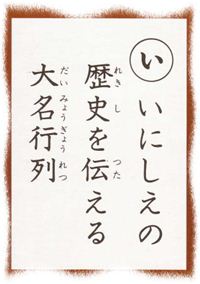 い
いにしえの
歴史を伝える
大名行列
れきし
つた
だいみょうぎょうれつ